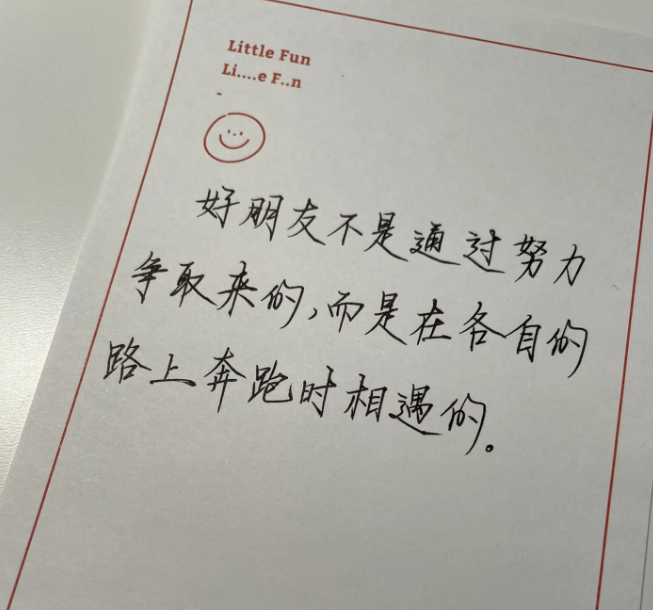 Little Fun
Li....e F..n
-
好朋友不是通过努力
争取来的,而是在各自的
路上奔跑时相遇的。